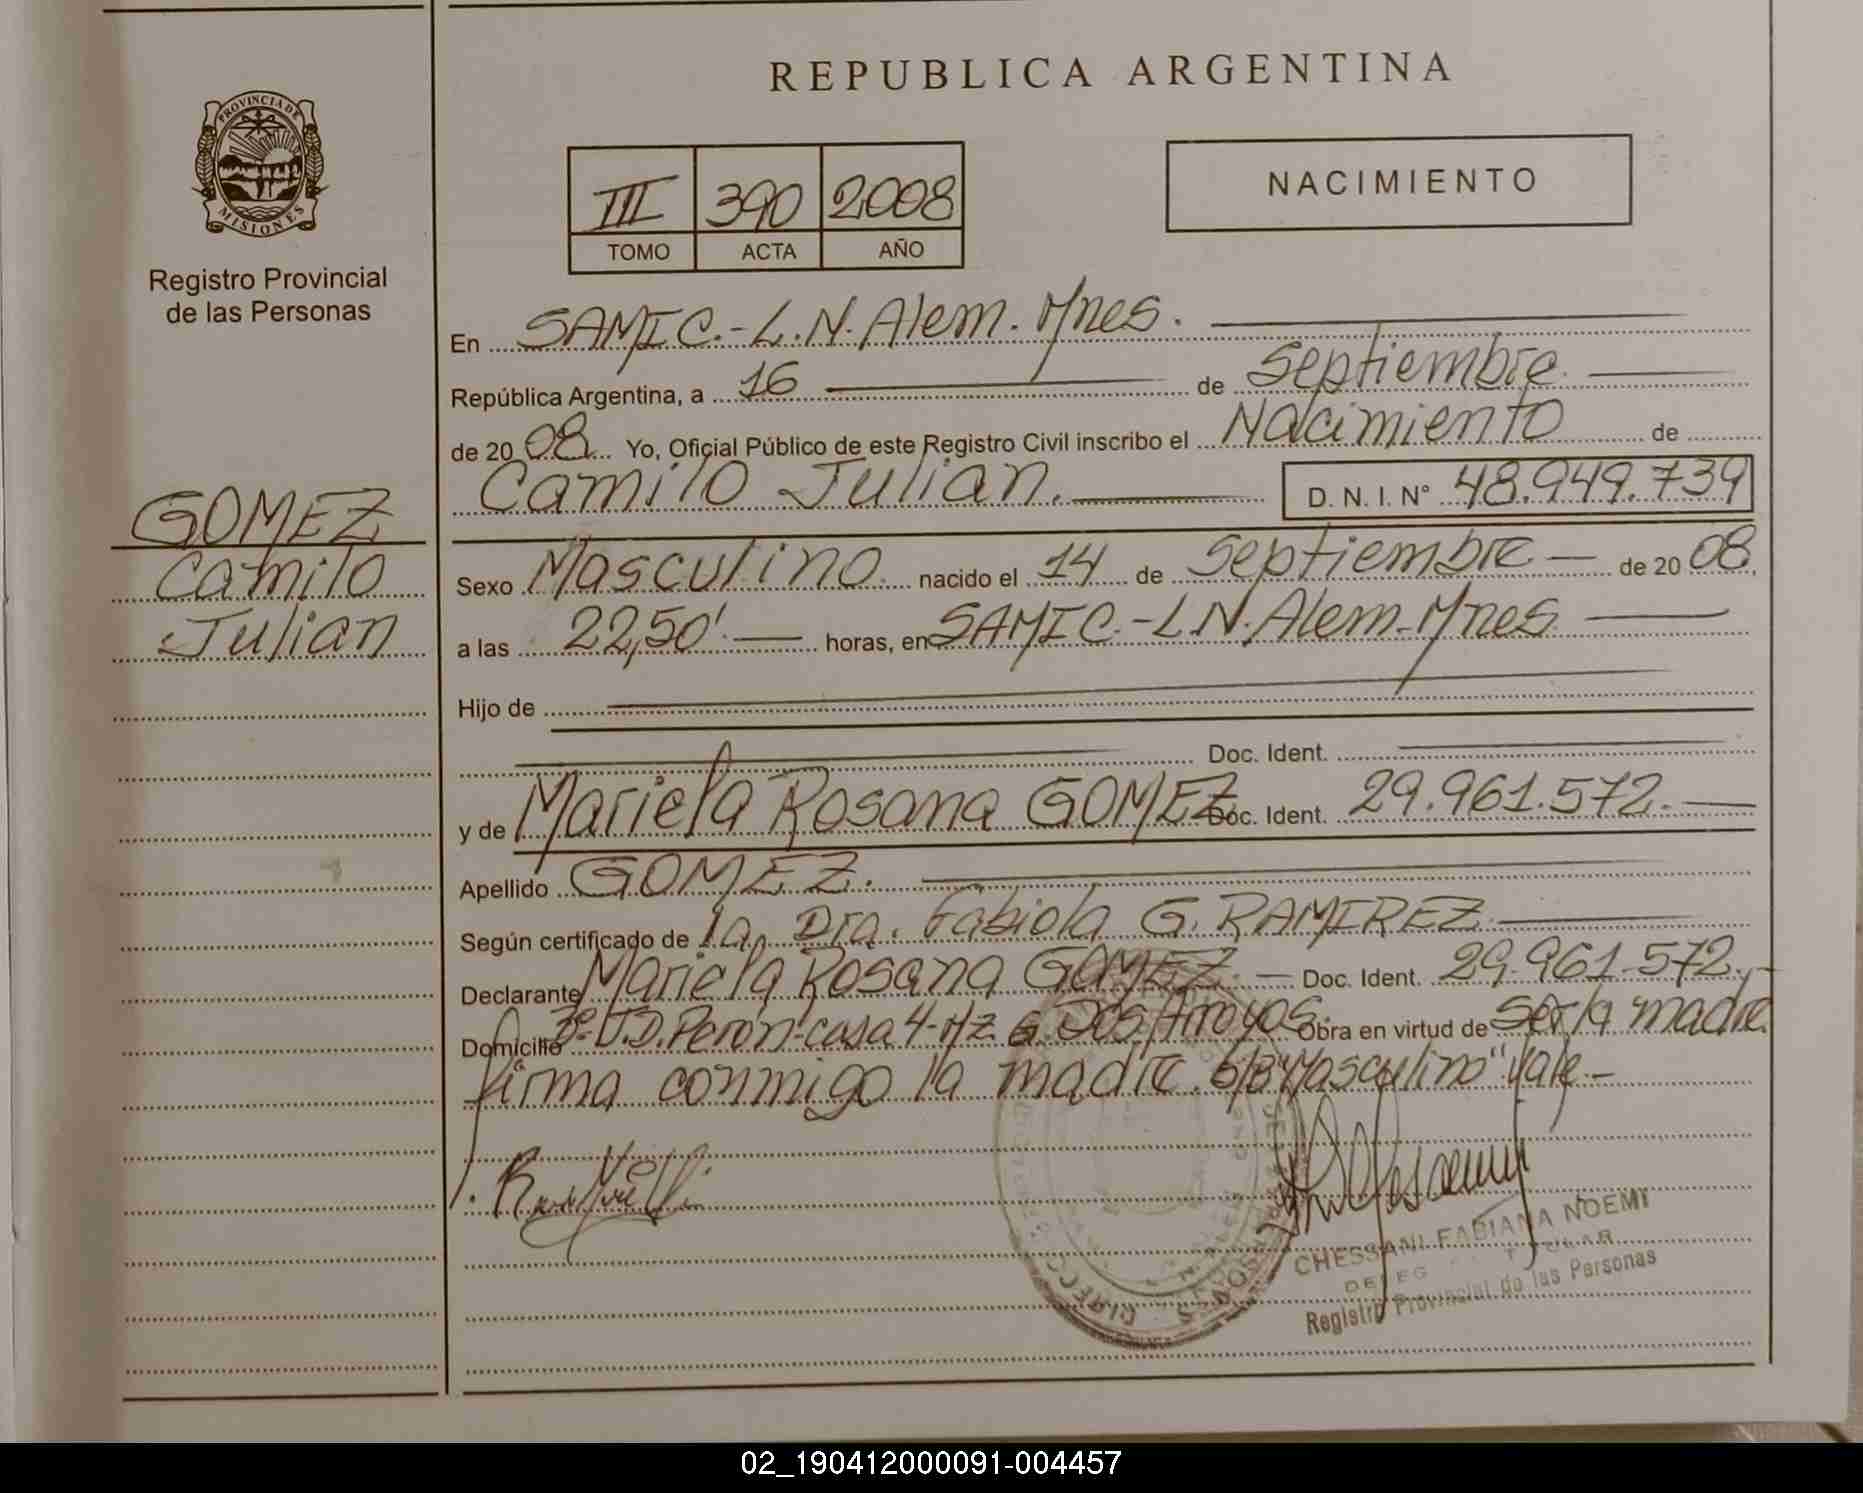 PROVINCIA DE
MISIONES
Registro Provincial
de las Personas
GOMEZ
Camilo
Julian
REPUBLICA ARGENTINA
III 390 2008
TOMO ACTA AÑO
NACIMIENTO
En SAMIC.-L.N. Alem. Mnes.
República Argentina, a 16 de Septiembre
de 20 08 Yo, Oficial Público de este Registro Civil inscribo el Nacimiento de
Camilo Julian. D. N. I. Nº 48.949.739
Sexo Masculino nacido el 14 de Septiembre de 20 08
a las 22,50' horas, en SAMIC.-L.N. Alem-Mnes
Hijo de
Doc. Ident.
y de Mariela Rosana GOMEZ Doc. Ident. 29.961.572.
Apellido GOMEZ.
Según certificado de la Dra. Fabiola G. RAMIREZ
Declarante Mariela Rosana GOMEZ Doc. Ident. 29.961.572.
Domicilio J.D. Perón-casa 4-Mz 6. Dos Arroyos. Obra en virtud de ser la madre
firma conmigo la madre. S/B "Masculino" Vale-
CHESSANI FABIANA NOEMI
TITULAR
Registro Provincial de las Personas
02_190412000091-004457